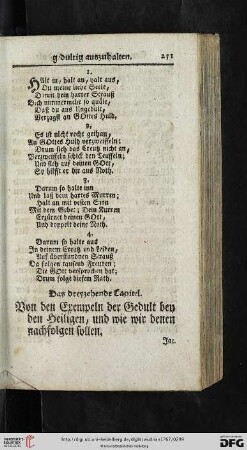 gedultig auszuhalten. 251
1.
Halt an, halt an, halt aus,
Du meine liebe Seele,
Damit dein harter Strauß
Dich nimmermehr so quäle,
Daß du aus Ungedult,
Verzagst an GOttes Huld.
2.
Es ist nicht recht gethan,
An GOttes Huld verzweiffeln;
Drum sieh das Creutz nicht an,
Verzweiffeln schickt den Teuffeln;
Und sieh auf deinen GOtt,
So hilfft er dir aus Noth.
3.
Darum so halte inn
Und laß dein hartes Murren;
Halt an mit vestem Sinn
Mit dem Gebet; Dein Murren
Erzürnet deinen GOtt,
Und doppelt deine Noth.
4.
Darum so halte aus
In deinem Creutz und Leiden,
Auf überstandnen Strauß
Da folgen tausend Freuden;
Die GOtt versprochen hat;
Drum folge diesem Rath.
Das dreyzehende Capitel.
Von den Exempeln der Gedult bey
den Heiligen, und wie wir denen
nachfolgen sollen.
Jac.
UNIVERSITÄTS-BIBLIOTHEK HEIDELBERG
Gefördert durch die
DFG